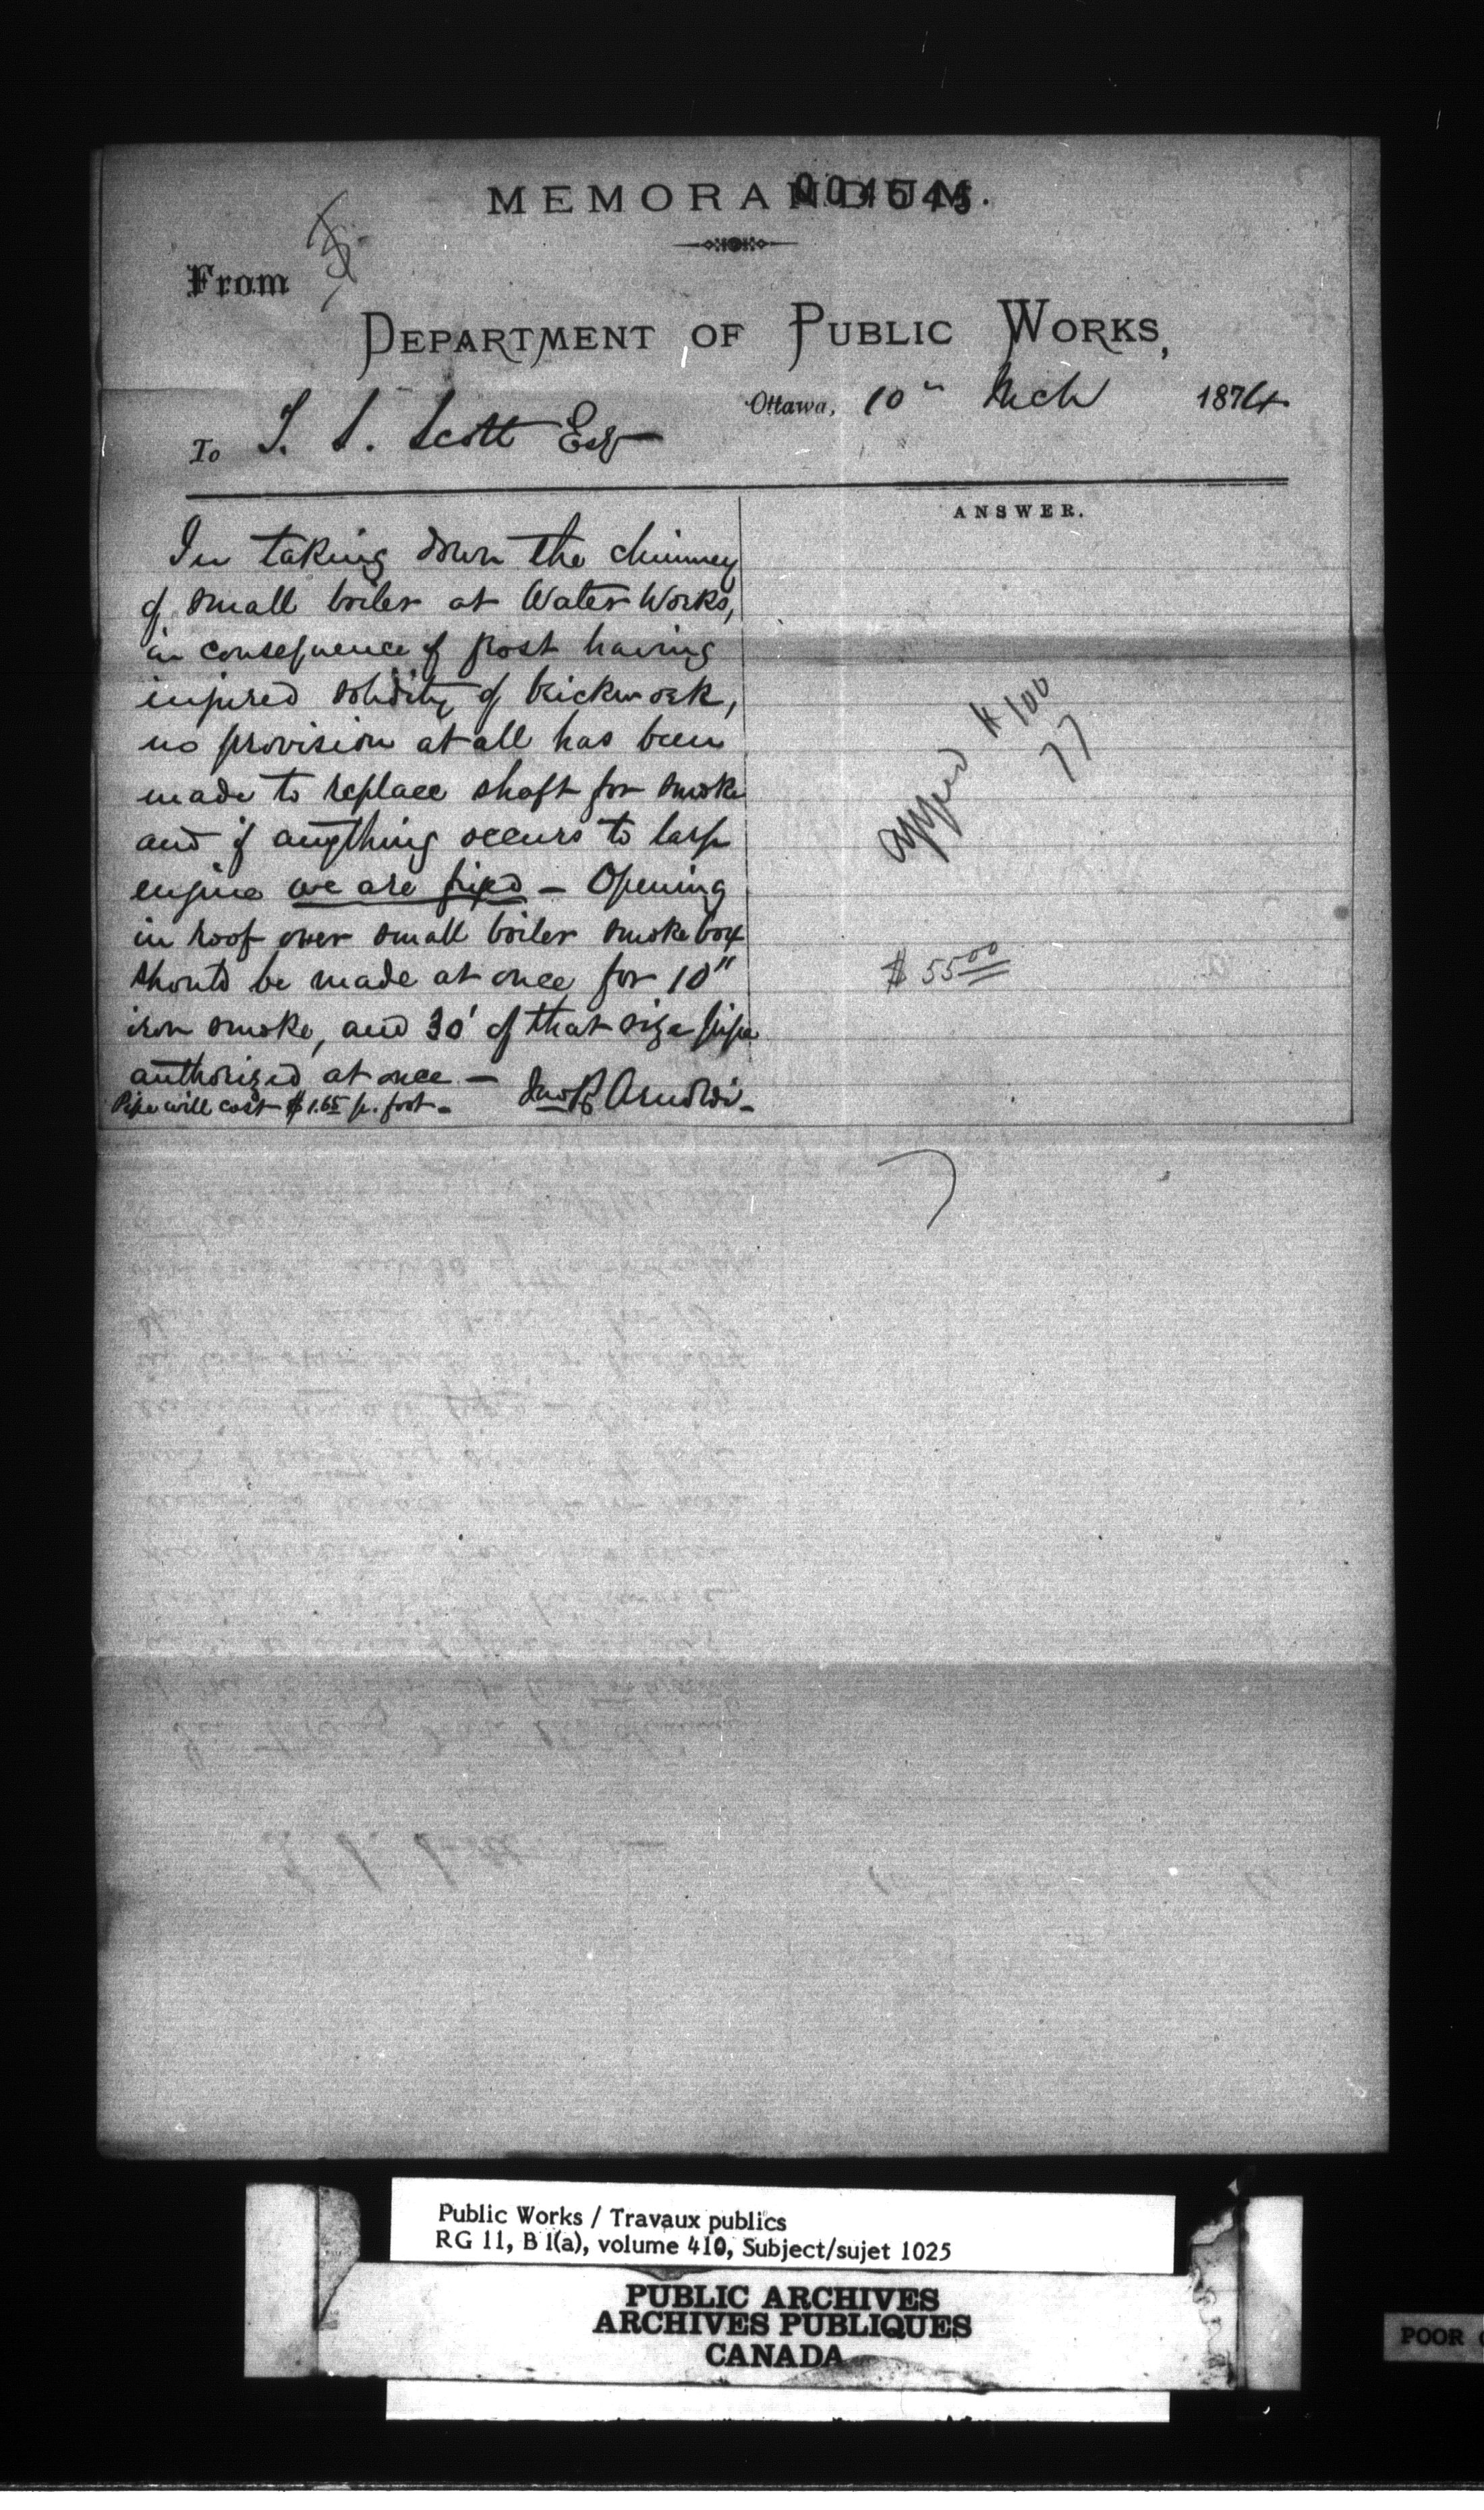 MEMORANDUM.
004545
From
DEPARTMENT OF PUBLIC WORKS,
Ottawa, 10th Mch 1874
To T. S. Scott Esq
ANSWER.
In taking down the chimney
of small boiler at Water Works,
in consequence of frost having
injured solidity of brickwork,
no provision at all has been
made to replace shaft for smoke
and if anything occurs to large
engine we are fixed – Opening
in roof over small boiler smoke box
should be made at once for 10"
iron smoke, and 30' of that size pipe
authorized at once –
Pipe will cost $1.65 p. foot –
Jno R Arnoldi –
$100
77
$5500
Public Works / Travaux publics
RG 11, B 1(a), volume 410, Subject/sujet 1025
PUBLIC ARCHIVES
ARCHIVES PUBLIQUES
CANADA
POOR